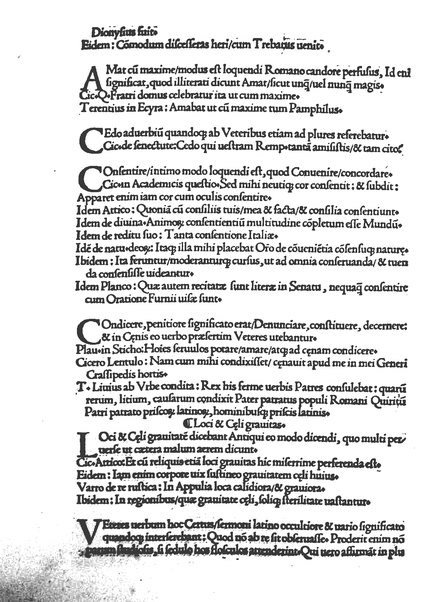 Dionysius fuit.
Eidem: Cõmodum discesseras heri/cum Trebatius uenit.
AMat cũ maxime/modus est loquendi Romano candore perfusus, Id enĩ
significat, quod illiterati dicunt Amat/sicut unq̃/uel nunq̃ magis.
Cic.Q. Fratri domus celebratur ita ut cum maxime.
Terentius in Ecyra: Amabat ut cũ maxime tum Pamphilus.
CEdo aduerbiũ quandoq; ab Veteribus etiam ad plures referebatur.
Cic. de senectute: Cedo qui uestram Remp. tantã amisistis/& tam cito?
COnsentire/intimo modo loquendi est, quod Conuenire/concordare.
Cic. in Academicis questio. Sed mihi neutiq̃ cor consentit: & subdit:
Apparet enim iam cor cum oculis consentire.
Idem Attico: Quoniã cũ consiliis tuis/mea & facta/& consilia consentiunt.
Idem de diuina. Animoȝ consentientiũ multitudine cõpletum esse Mundũ.
Idem de reditu suo: Tanta consentione Italiæ.
Idẽ de natu. deoȝ: Itaq; illa mihi placebat Oĩo de cõueniẽtia cõsensuq; naturę.
Ibidem: Ita feruntur/moderanturq; cursus, ut ad omnia conseruanda/& tuen
da consensisse uideantur.
Idem Planco: Quæ autem recitatæ sunt literæ in Senatu, nequaq̃ consentire
cum Oratione Furnii uisæ sunt.
COndicere, penitiore significato erat/Denunciare, constituere, decernere:
& in Cęnis eo uerbo præsertim Veteres utebantur.
Plau. in Sticho: Hoĩes seruulos potare/amare/atq; ad cęnam condicere.
Cicero Lentulo: Nam cum mihi condixisset/cęnauit apud me in mei Generi
Crassipedis hortis.
T. Liuius ab Vrbe condita: Rex his ferme uerbis Patres consulebat: quarũ
rerum, litium, causarum condixit Pater patratus populi Romani Quiritũ
Patri patrato priscoȝ latinoȝ, hominibusq; priscis latinis.
¶Loci & Cęli grauitas.
LOci & Cęli grauitatẽ dicebant Antiqui eo modo dicendi, quo multi per/
uerse ut cætera malum aerem dicunt.
Cic. Attico: Et cũ reliquis etiã loci grauitas hic miserrime perferenda est.
Eidem: Iam enim corpore uix sustineo grauitatem cęli huius.
Varro de re rustica: In Appulia loca calidiora/& grauiora.
Ibidem: In regionibus/quæ grauitate cęli, soliq; sterilitate uastantur.
VEteres uerbum hoc Certus/sermoni latino occultiore & uario significato
quandoq; interserebant: Quod nõ ab re sit obseruasse. Proderit enim nõ
parum studiosis, si sedulo hos flosculos attenderint. Qui uero affirmãt in plu